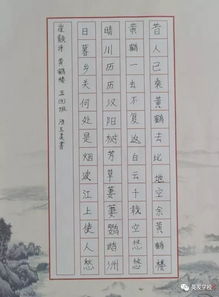 昔人已乘黄鹤去此地空余黄鹤楼
黄鹤一去不复返白云千载空悠悠
晴川历历汉阳树芳草萋萋鹦鹉洲
日暮乡关何处是烟波江上使人愁
崔颢诗 黄鹤楼 五 班 书
学校